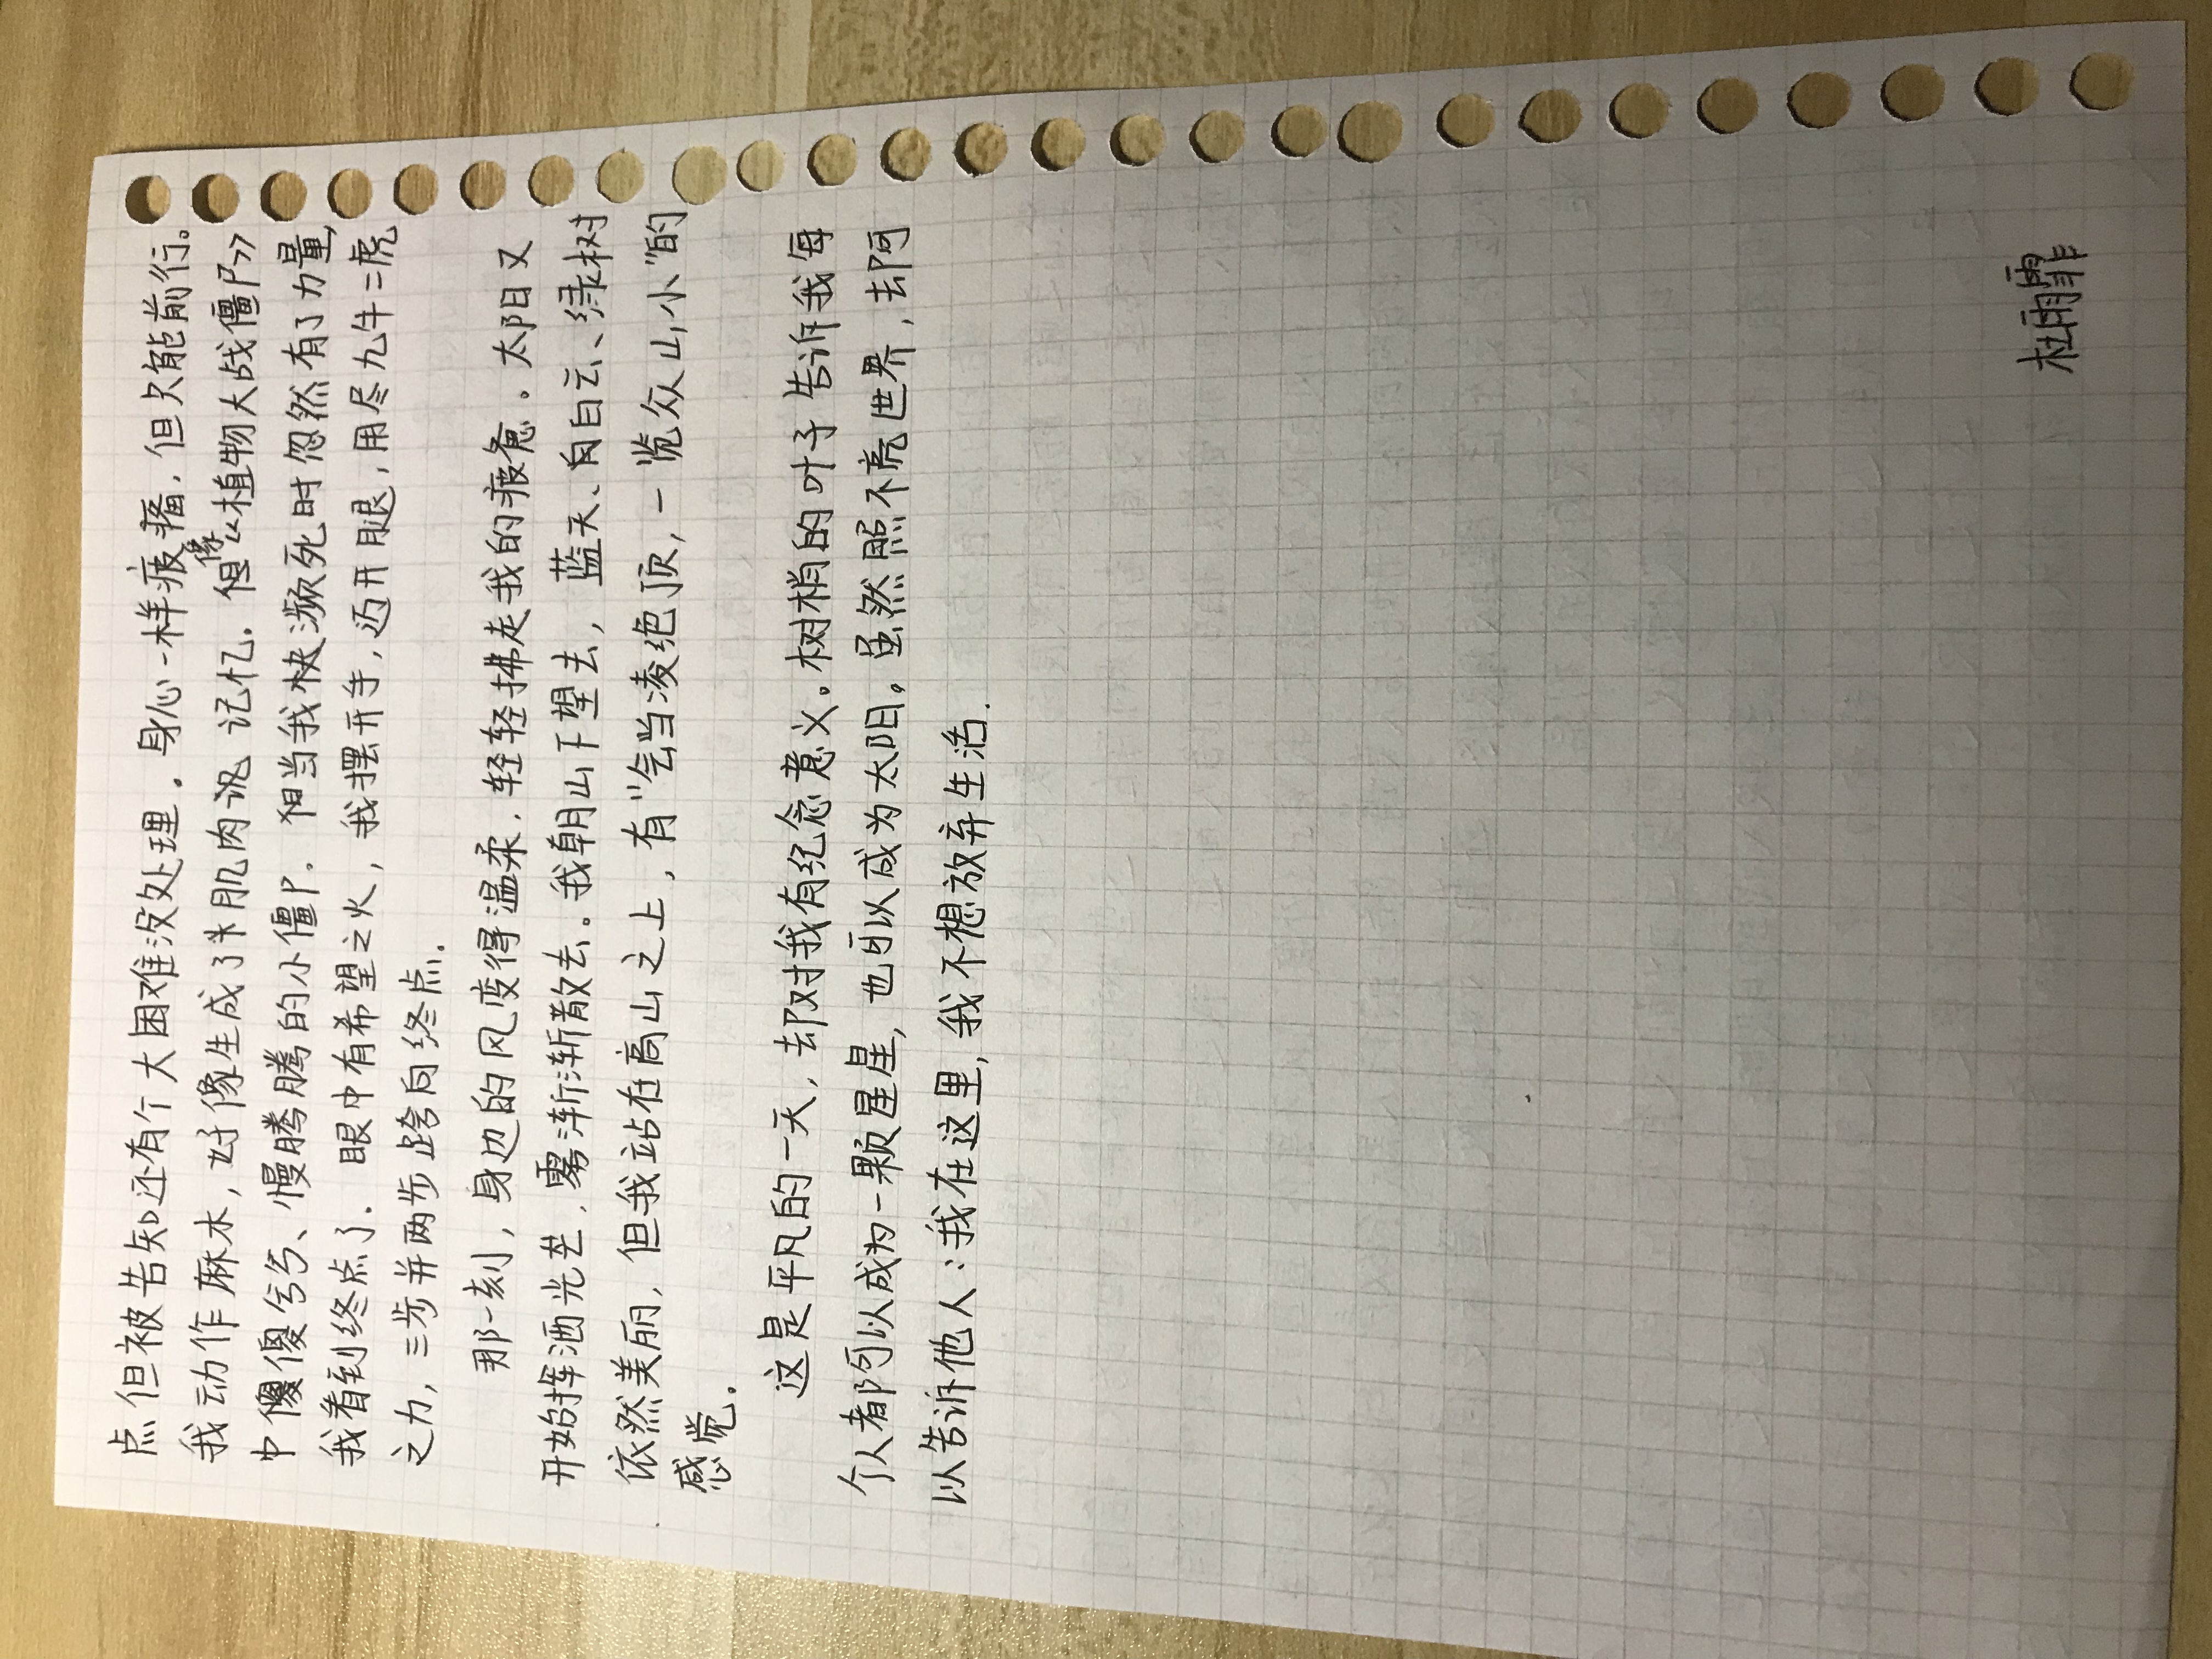 点但被告知还有个大困难没处理.身心一样疲惫,但只能前行。
我动作麻木,好像生成了肌肉记忆.像《植物大战僵尸》
中傻傻兮兮、慢腾腾的小僵尸.但当我快濒死时忽然有了力量,
我看到终点了.眼中有希望之火,我摆开手,迈开腿,用尽九牛二虎
之力,三步并两步跨向终点.
那一刻,身边的风变得温柔,轻轻拂走我的疲惫.太阳又
开始挥洒光芒,雾渐渐散去.我朝山下望去,蓝天、白云、绿树
依然美丽,但我站在高山之上,有“会当凌绝顶,一览众山小”的
感觉.
这是平凡的一天,却对我有纪念意义.树梢的叶子告诉我每
个人都可以成为一颗星星,也可以成为太阳.虽然照不亮世界,却可
以告诉他人:我在这里,我不想放弃生活.
杜雨霏